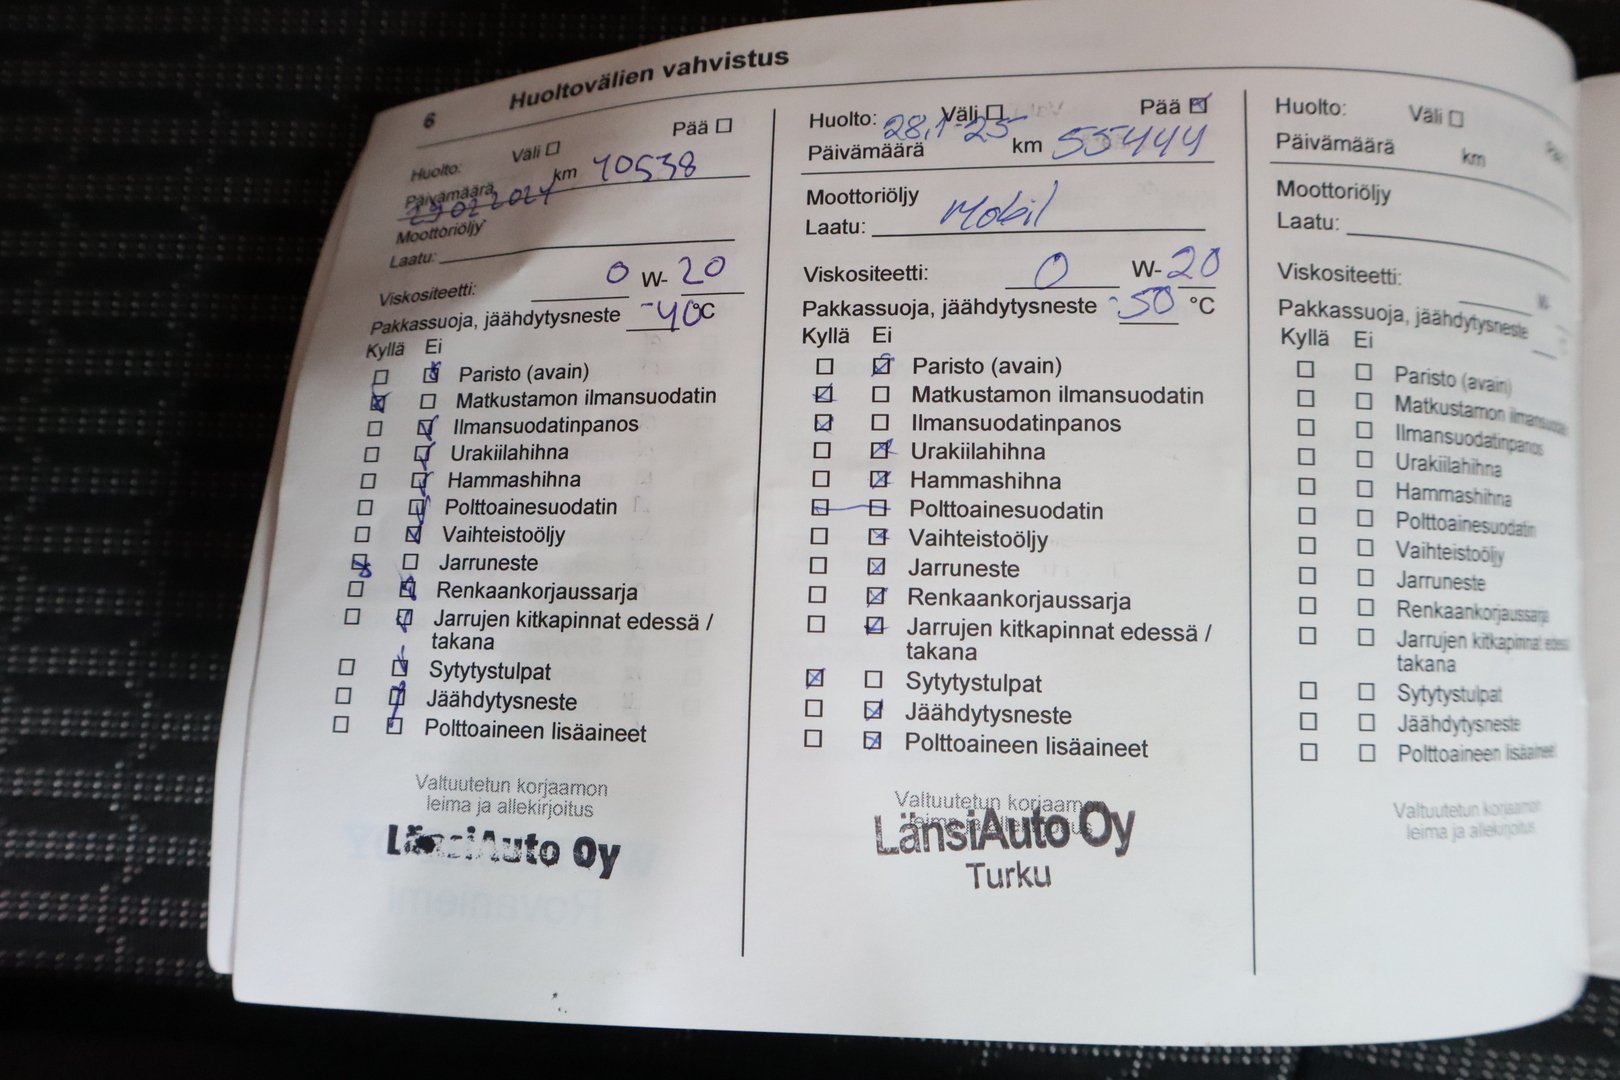 6 Huoltovälien vahvistus
Huolto: Väli ☐ Pää ☐
Päivämäärä 29022024 km 40538
Moottoriöljy
Laatu:
Viskositeetti: 0 W- 20
Pakkassuoja, jäähdytysneste -40 °C
Kyllä Ei
☐ ☒ Paristo (avain)
☒ ☐ Matkustamon ilmansuodatin
☐ ☒ Ilmansuodatinpanos
☐ ☒ Urakiilahihna
☐ ☒ Hammashihna
☐ ☒ Polttoainesuodatin
☐ ☒ Vaihteistoöljy
☒ ☐ Jarruneste
☐ ☒ Renkaankorjaussarja
☐ ☒ Jarrujen kitkapinnat edessä /
takana
☐ ☒ Sytytystulpat
☐ ☒ Jäähdytysneste
☐ ☒ Polttoaineen lisäaineet
Valtuutetun korjaamon
leima ja allekirjoitus
LänsiAuto Oy
Huolto: Väli ☐ Pää ☒
Päivämäärä 28,1-25 km 55444
Moottoriöljy
Laatu: Mobil
Viskositeetti: 0 W- 20
Pakkassuoja, jäähdytysneste -50 °C
Kyllä Ei
☐ ☒ Paristo (avain)
☒ ☐ Matkustamon ilmansuodatin
☒ ☐ Ilmansuodatinpanos
☐ ☒ Urakiilahihna
☐ ☒ Hammashihna
☐ ☐ Polttoainesuodatin
☐ ☒ Vaihteistoöljy
☐ ☒ Jarruneste
☐ ☒ Renkaankorjaussarja
☐ ☒ Jarrujen kitkapinnat edessä /
takana
☒ ☐ Sytytystulpat
☐ ☒ Jäähdytysneste
☐ ☒ Polttoaineen lisäaineet
Valtuutetun korjaamon
leima ja allekirjoitus
LänsiAuto Oy
Turku
Huolto: Väli ☐
Päivämäärä km
Moottoriöljy
Laatu:
Viskositeetti:
Pakkassuoja, jäähdytysneste
Kyllä Ei
☐ ☐ Paristo (avain)
☐ ☐ Matkustamon ilmansuodatin
☐ ☐ Ilmansuodatinpanos
☐ ☐ Urakiilahihna
☐ ☐ Hammashihna
☐ ☐ Polttoainesuodatin
☐ ☐ Vaihteistoöljy
☐ ☐ Jarruneste
☐ ☐ Renkaankorjaussarja
☐ ☐ Jarrujen kitkapinnat edessä
takana
☐ ☐ Sytytystulpat
☐ ☐ Jäähdytysneste
☐ ☐ Polttoaineen lisäaineet
Valtuutetun korjaamon
leima ja allekirjoitus